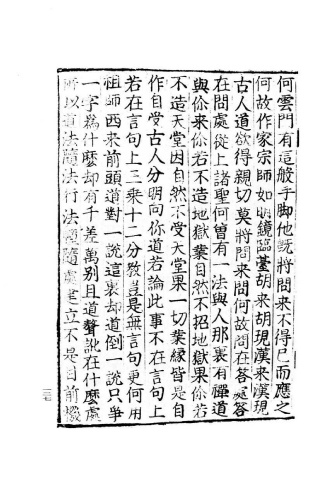 何雲門有這般手脚他既將問來不得已而應之
何故作家宗師如明鏡臨臺胡來胡現漢來漢現
古人道欲得親切莫將問來問何故問在答處答
在問處從上諸聖何曽有一法與人那裏有禪道
與你來你若不造地獄業自然不招地獄果你若
不造天堂因自然不受天堂果一切業縁皆是自
作自受古人分明向你道若論此事不在言句上
若在言句上三乗十二分敎豈是無言句更何用
祖師西來前頭道對一說這裏却道倒一說只爭
一字爲什麽却有千差萬别且道聱訛在什麽處
所以道法隨法行法幢隨處建立不是目前機
三七